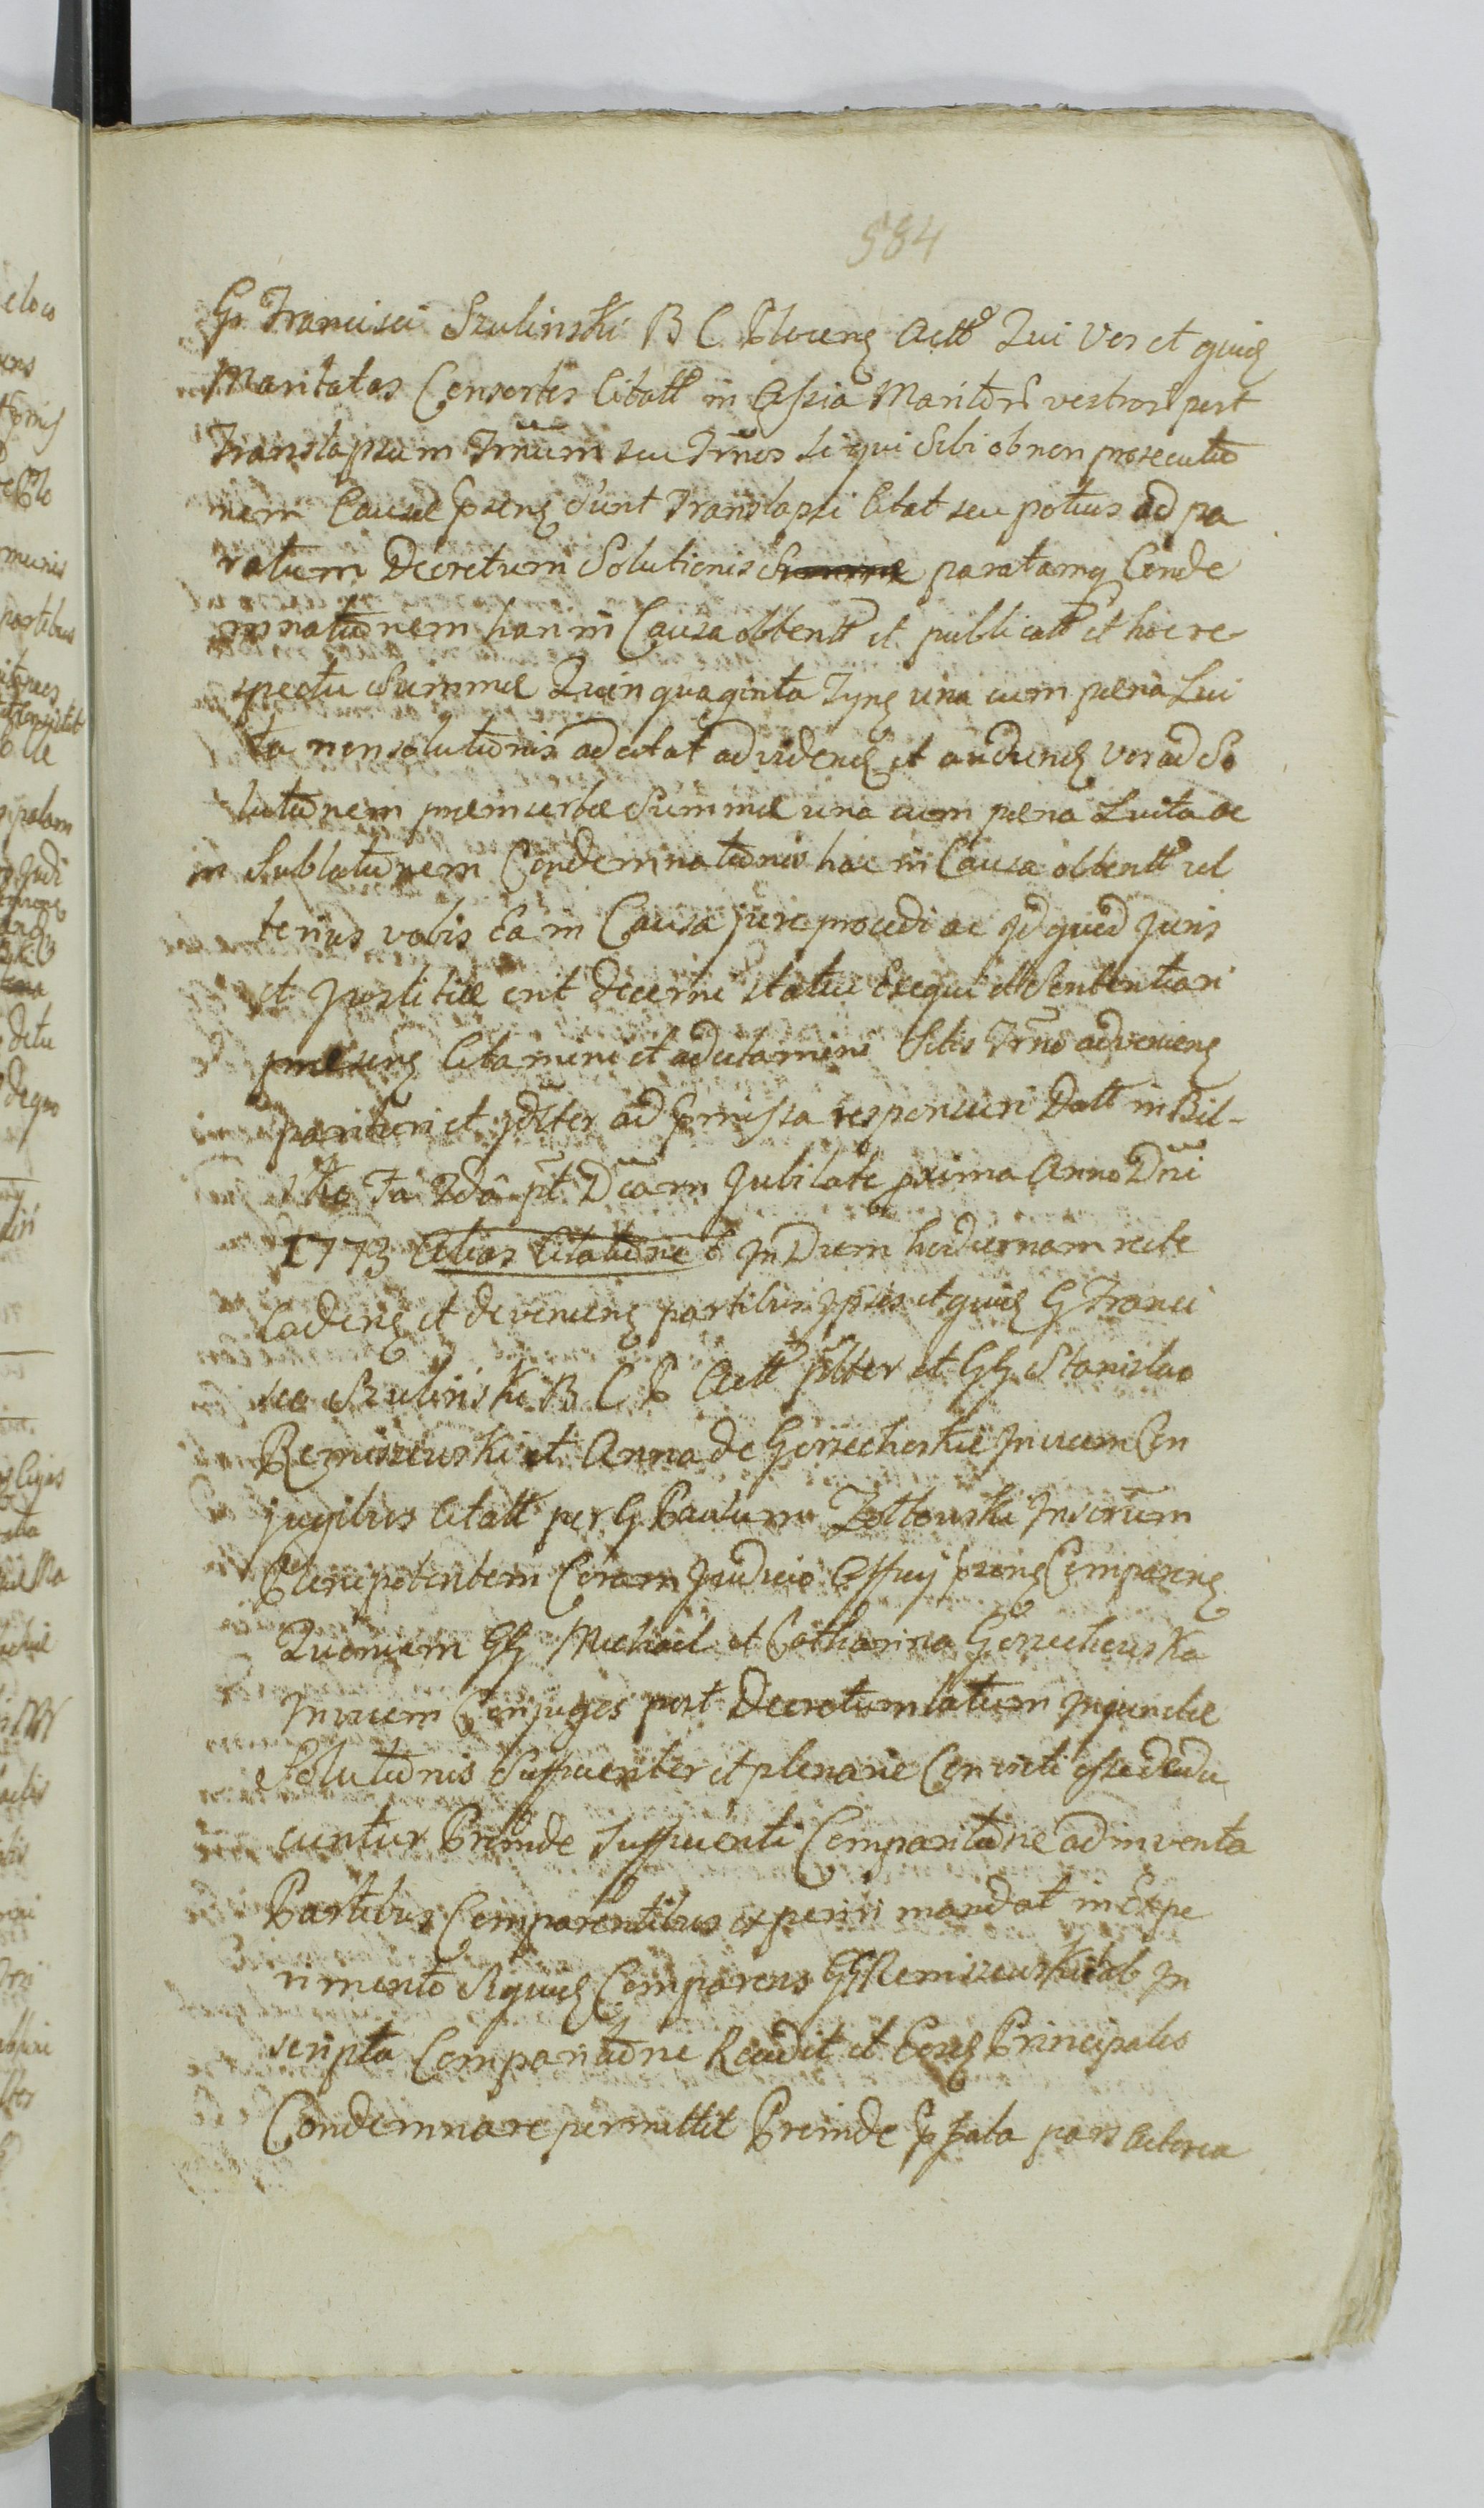 584
G. Francisci Szulinski B C Plocens Actt Qui Vos et quid
Maritatas Consortes Citatt in Assia Maritorum vestror post
Translapsum Trnum seu Trnos si qui sibi ob non prosecutio
nem Causae prns sunt Translapsi Citat seu potius ad pa
ratum Decretum Solutionis paratamq Conde
mnationem han in Causa obtentt et publicatt et hoc re
spectu Summae Quinquaginta Tynf una cum paena Lui
ta non solutionis adcitat ad vidend et audiend vos ad So
lutionem praeinsertae Summae una cum paena Luita ac
in Sublationem Condemnationis hac in Causa obtentt ul
terius vobis Ea in Causa jure procedi ac Id quid Juris
et Justitiae erit decerni statui Exequi et Sententiari
praesens Citamini et adcitamini Sitis Trno adveniens
parituri et jditer ad praemissa responsuri Datt in Biel-
sko Fa 2da pt Dcam Jubilate prima Anno Dni
1773 Alias Citatione In Diem hodiernam recte
Cadens et devenienς partibus Ipsis et quid G Franci
sco Szulinski B C P Actt psltter et GG Stanislao
Remiszewski et Anna de Gorzechoskie Invicem Con
jugibus Citatt per G Paulum Zoltowski Inscrum
Plenipotentem Coram Judicio Officij prns Comparens
Quoniam GG Michael et Catharina Gorzechowska
Invicem Conjuges post Decretum latum Injunctae
Solutionis Sufficienter et plenarie Convicti esse dedu
cuntur Proinde sufficienti Comparitione adinventa
Partibus Comparentibus experiri mandat in Expe
rimento Siquid Comparens GG Remiszewskich ab In
scripta Comparitione Recedit et Eosd Principales
Condemnare permittit Proinde pfata pars Actorea